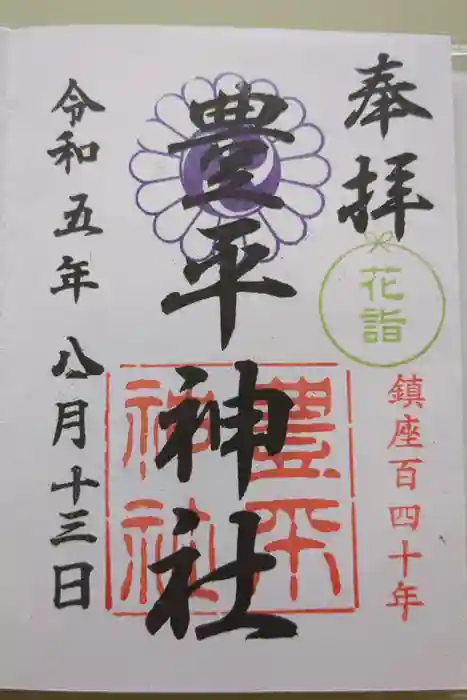 奉拝
花詣
鎮座百四十年
豊平神社
豊平
神社
令和五年八月十三日